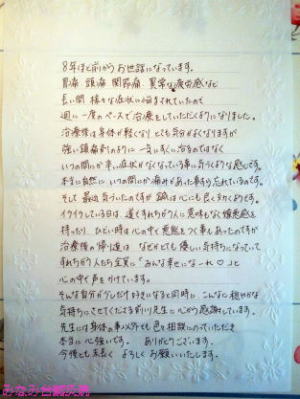 8年ほど前からお世話になっています。
胃痛 頭痛 関節痛 異常な疲労感など
長い間 様々な症状に悩まされていたので
週に一度のペースで治療をしていただくようになりました。
治療後は身体が軽くなり とても気分がよくなりますが
強い鎮痛剤のように 一気にすぐに治るのではなく
いつの間にか辛い症状がなくなっている事に気づくような感じです。
本当に自然に いつの間にか痛みがあった事すら忘れているのです。
そして 最近気づいたのですが 鍼は心にも良く効くようです。
イライラしている日は、道ですれちがう人に意味もなく嫌悪感を
持ったり、ひどい時は心の中で悪態をつく事もあったのですが
治療後の帰り道は なぜかとても優しい気持ちになっていて
すれちがう人たち全員に「みんな幸せになーれ♡」と
心の中で声をかけています。
そんな自分が少しだけ好きになると同時に こんなに穏やかな
気持ちにさせてくださる前川先生に心から感謝しています。
先生には身体の事以外でも色々相談にのっていただき
本当に心強いです。 ありがとうございます。
今後とも末長く よろしくお願いいたします。
みなみ台鍼灸院